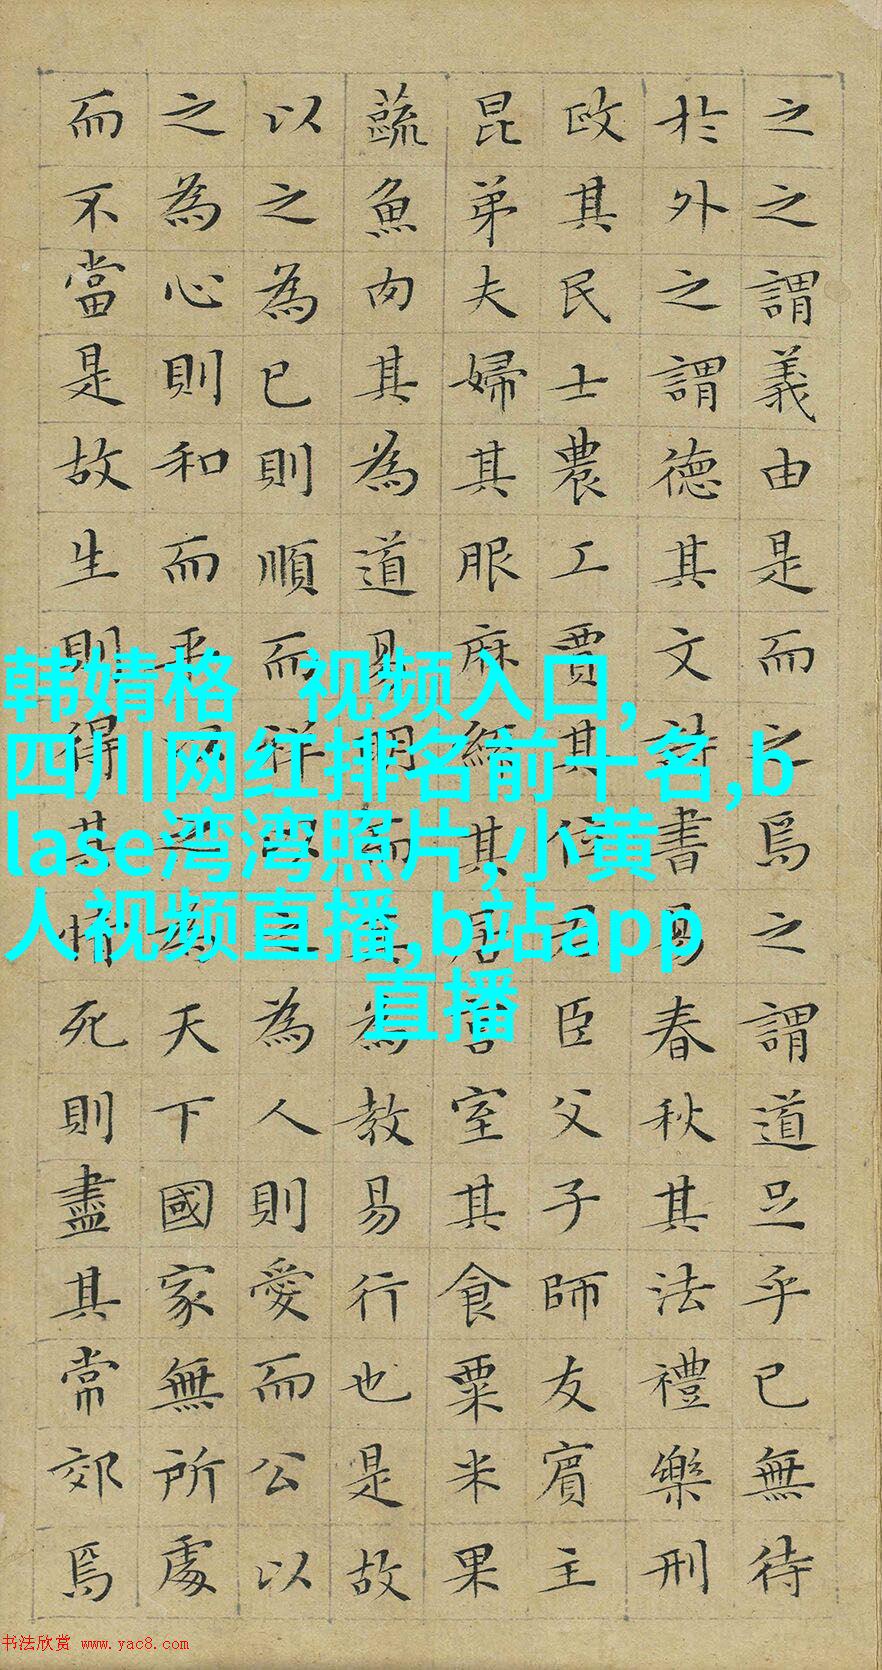 之之謂義由是而之焉之謂道足乎已無待
於外之謂德其文詩書易春秋其法禮樂刑
政其民士農工賈其位君臣父子師友賓主
昆弟夫婦其服麻絲其居宮室其食粟米果
蔬魚肉其為道易明而其為教易行也是故
以之為已則順而祥以之為人則愛而公以
之為心則和而平以之為天下國家無所處
而不當是故生則得其情死則盡其常郊焉
韩婧格 视频入口,
四川网红排名前十名,b
lase湾湾照片,小黄
人视频直播,b站app
直播
书法欣赏 www.yac8.com